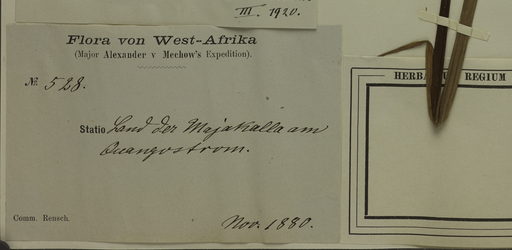 III. 1920.
Flora von West-Afrika
(Major Alexander v Mechow's Expedition).
№ 528.
Statio Land der Majakalla am
Quangostrom.
Comm. Rensch.
Nov. 1880.
REGIUM